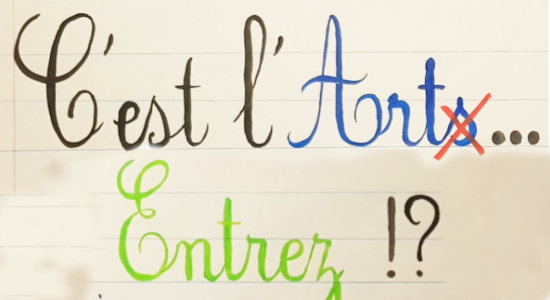 C'est l'Arts...
Entrez !?